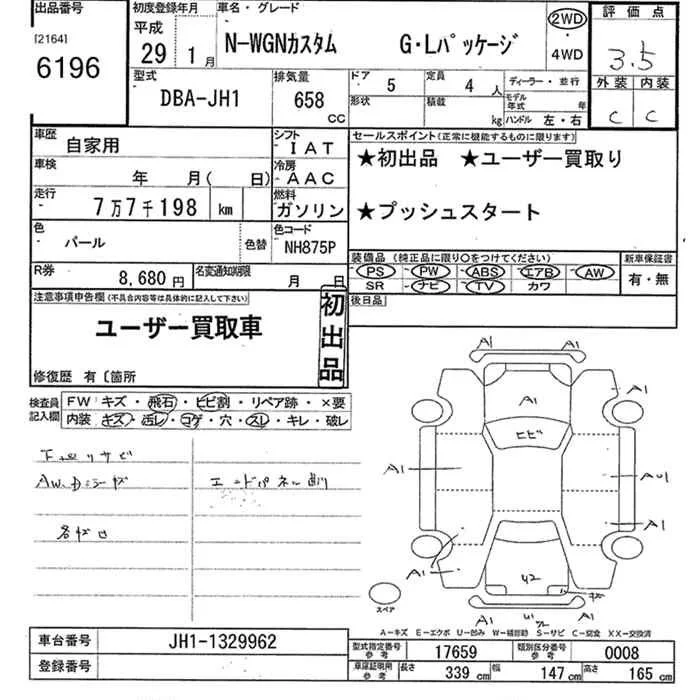 出品番号 初度登録年月 車名・グレード 2WD 評価点
[2164] 平成 ・ 3.5
6196 29 1月 N-WGNカスタム G・Lパッケージ 4WD
型式 排気量 ドア 5 定員 4人 ディーラー・並行 外装 内装
DBA-JH1 658 CC 形状 積載 kg モデル年式 年 C C
ハンドル 左・右
車歴 自家用 シフト セールスポイント(正常に機能するものに限ります)
・IAT
車検 年 月( 日) 冷房 ★初出品 ★ユーザー買取り
・AAC
走行 7万7千198 km 燃料
ガソリン ★プッシュスタート
色 パール 色替 色コード
NH875P 装備品(純正品に限り○をつけてください) 新車保証書
R券 8,680円 名変通知期限 月 日 PS PW ABS エアB AW 有・無
SR ナビ TV カワ
注意事項申告欄(不具合内容等は具体的に記入して下さい) 初出品 後日品
ユーザー買取車
修復歴 有〔箇所
検査員 FW キズ・飛石・ヒビ割・リペア跡・×要
記入欄 内装 キズ・汚レ・コゲ・穴・スレ・キレ・破レ
下廻りサビ
AW.Dミラーキズ エンドパネル曲り
各キズ凹
A1 A1
A1
A1
ヒビ
A1 AU1
A1
A1
U2 キズ
A1 A1
スペア
A-キズ E-エクボ U-凹み W-補修跡 S-サビ C-腐食 XX-交換済
車台番号 JH1-1329962 型式指定番号 参考 17659 類別区分番号 参考 0008
登録番号 車庫証明用 参考 長さ 339cm 幅 147cm 高さ 165cm